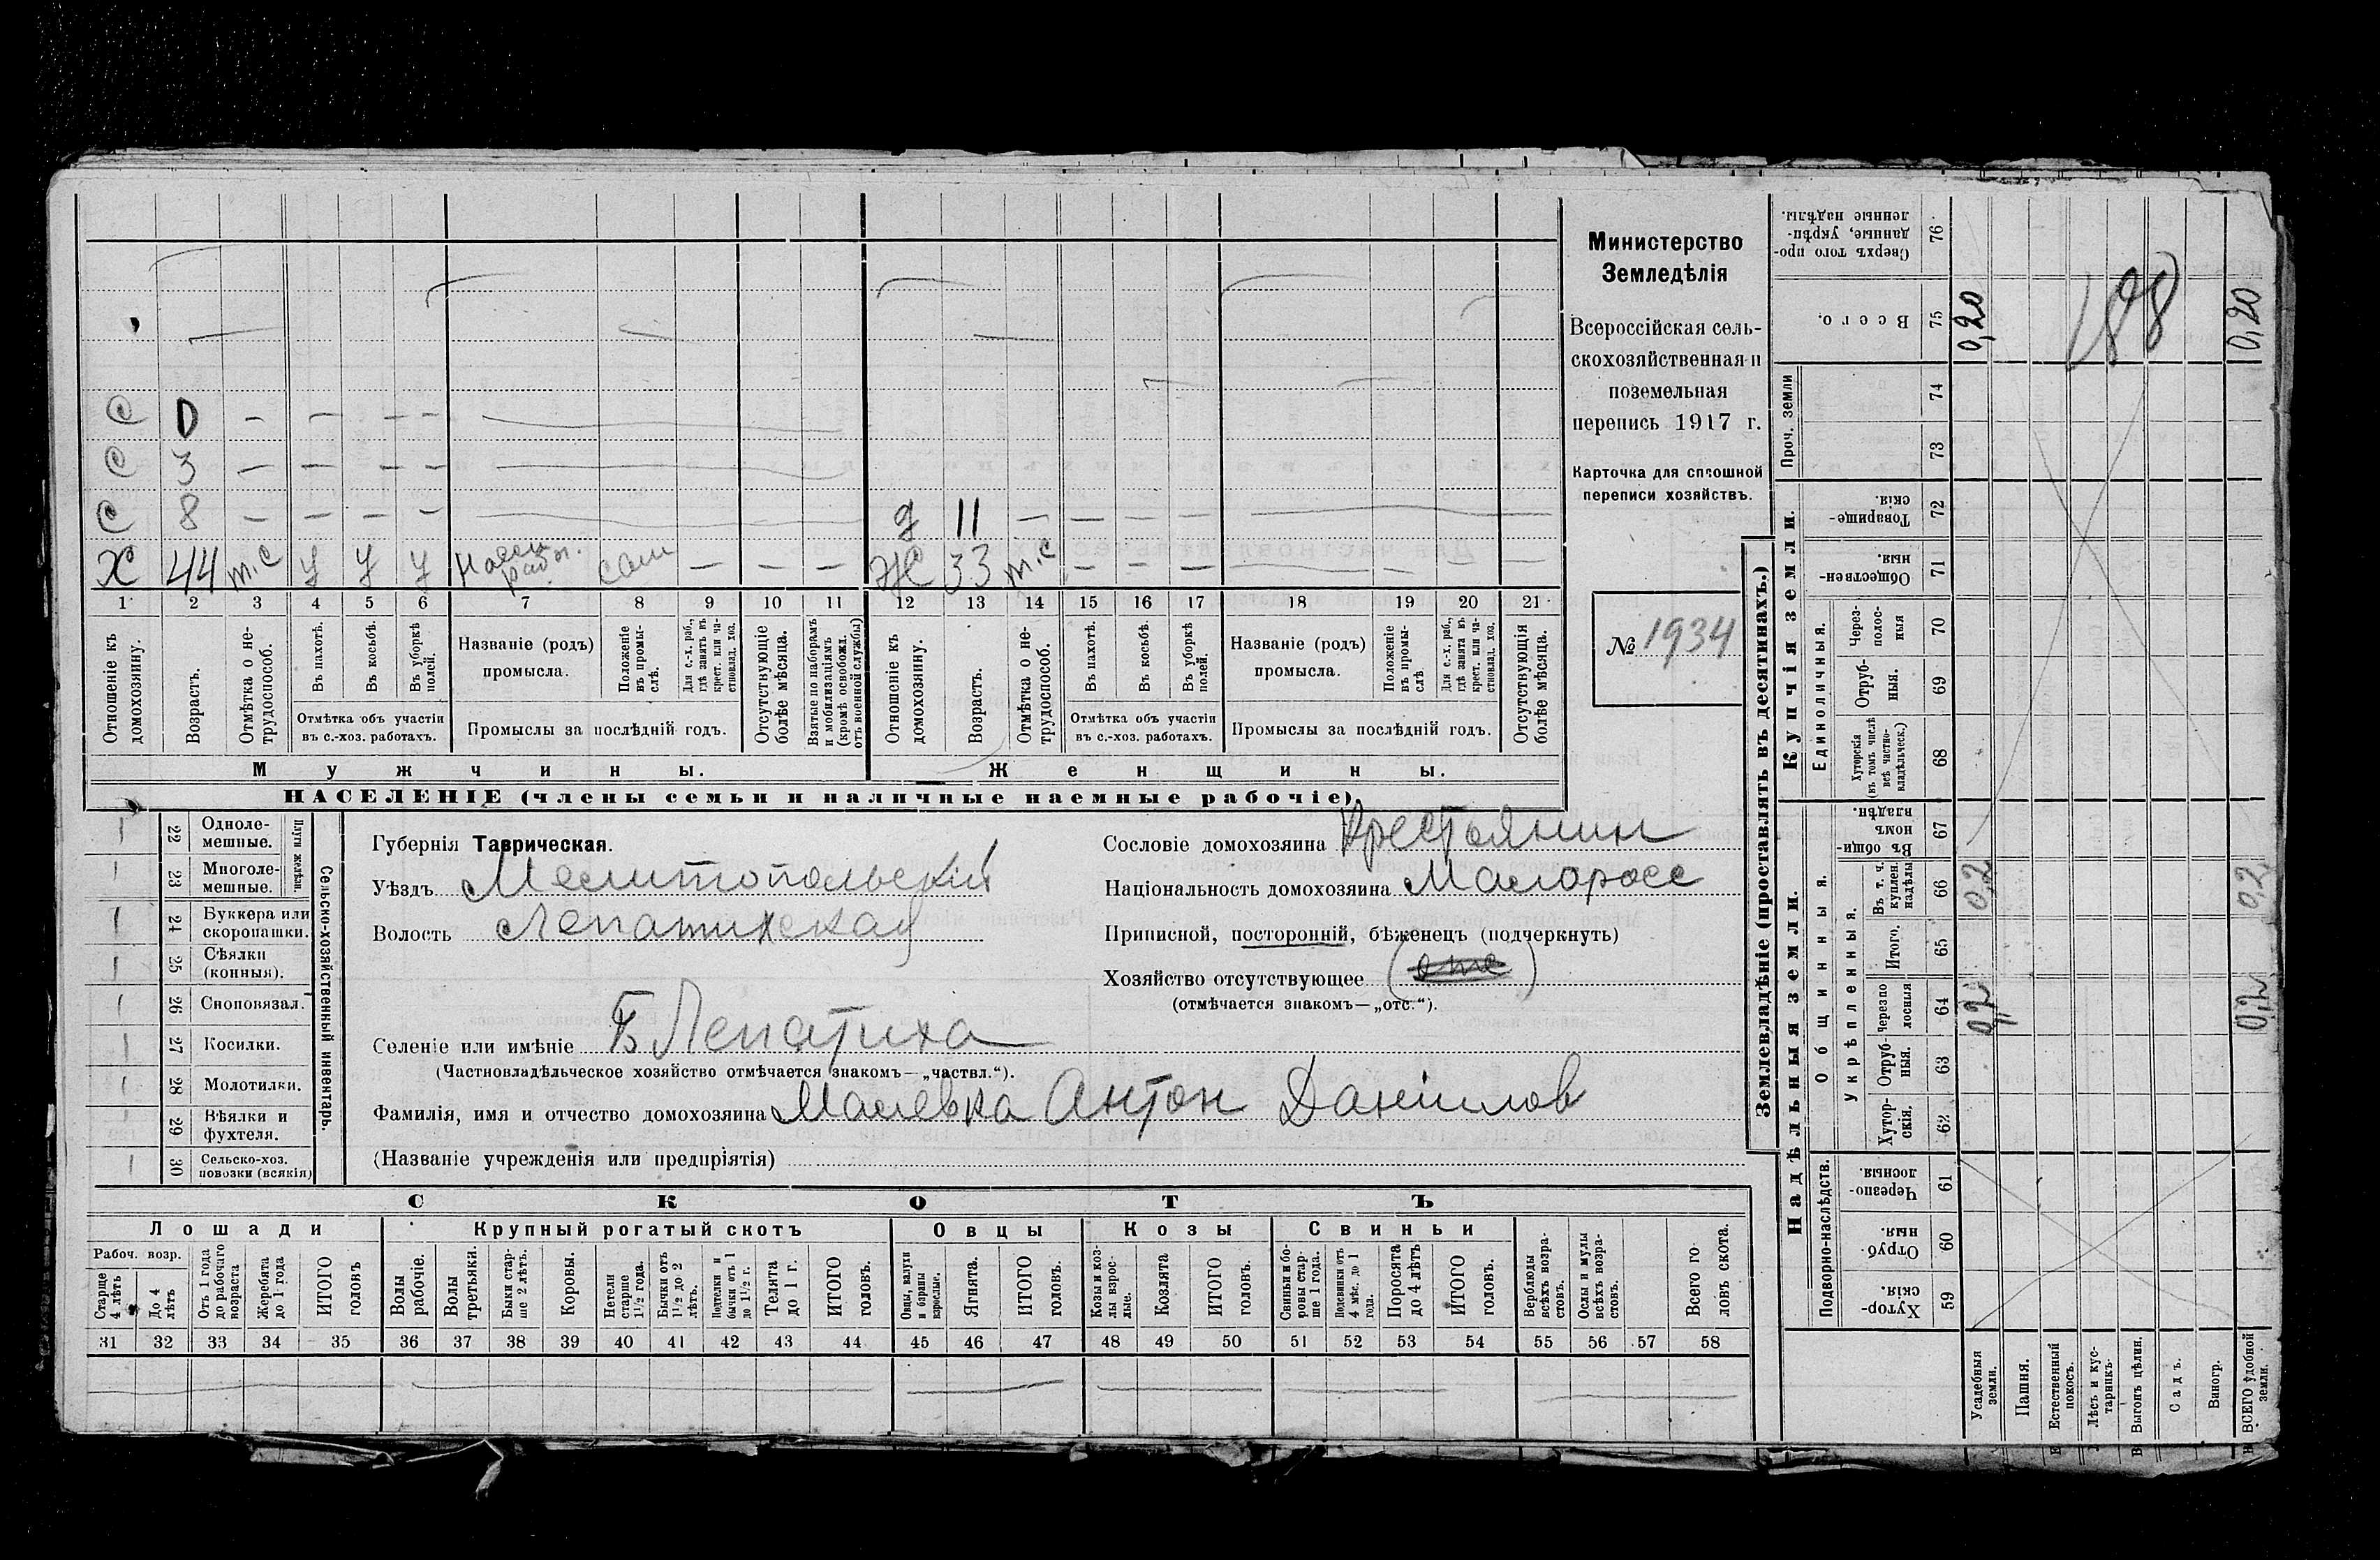 Министерство
Земледѣлія
Всероссійская сель-
скохозяйственная и
поземельная
перепись 1917 г.
Карточка для сплошной
переписи хозяйствъ.
№ 1934
С 0 — — — —
С 3 — — — —
С 8 — — — — д 11 — — — —
Х 44 т.с У У У — — — Ж 33 т.с — — — — — —
1 2 3 4 5 6 7 8 9 10 11 12 13 14 15 16 17 18 19 20 21
Отношеніе къ домохозяину.
Возрастъ.
Отмѣтка о не-трудоспособ.
Въ пахотѣ.
Въ косьбѣ.
Въ уборкѣ полей.
Отмѣтка объ участіи
въ с.-хоз. работахъ.
Названіе (родъ)
промысла.
Положеніе въ промы-слѣ.
Для с.-х. раб., гдѣ занятъ въ крест. или ча-стновлад. хоз.
Промыслы за послѣдній годъ.
Отсутствующіе болѣе мѣсяца.
Взятые по наборамъ и мобилизаціямъ (кромѣ освобожд. отъ военной службы)
Отношеніе къ домохозяину.
Возрастъ.
Отмѣтка о не-трудоспособ.
Въ пахотѣ.
Въ косьбѣ.
Въ уборкѣ полей.
Отмѣтка объ участіи
въ с.-хоз. работахъ.
Названіе (родъ)
промысла.
Положеніе въ промы-слѣ
Для с.-х. раб., гдѣ занята въ крест. или ча-стновлад. хоз.
Промыслы за послѣдній годъ.
Отсутствующія болѣе мѣсяца.
Мужчины.
Женщины.
НАСЕЛЕНІЕ (члены семьи и наличные наемные рабочіе).
22 Одноле-мешные.
23 Многоле-мешные.
Плуги желѣзн.
24 Буккера или скоропашки.
25 Сѣялки (конныя).
26 Сноповязал.
27 Косилки.
28 Молотилки.
29 Вѣялки и фухтеля.
30 Сельско-хоз. повозки (всякія)
Сельско-хозяйственный инвентарь.
Губернія Таврическая.
Уѣздъ Мелитопольскій
Волость Лепатихская
Сословіе домохозяина Крестьянин
Національность домохозяина Малоросс
Приписной, посторонній, бѣженецъ (подчеркнуть)
Хозяйство отсутствующее
(отмѣчается знакомъ—„отс.“).
Селеніе или имѣніе Б Лепатиха
(Частновладѣльческое хозяйство отмѣчается знакомъ—„частвл.“).
Фамилія, имя и отчество домохозяина Малевка Антон Данилов
(Названіе учрежденія или предпріятія)
СКОТЪ
Лошади
Крупный рогатый скотъ
Овцы
Козы
Свиньи
Рабоч. возр.
Старше 4 лѣтъ
До 4 лѣтъ
Отъ 1 года до рабочаго возраста
Жеребята до 1 года
ИТОГО головъ
Волы рабочіе.
Волы третьяки.
Быки стар-ше 2 лѣтъ.
Коровы.
Нетели старше 1½ года.
Бычки отъ 1½ до 2 лѣтъ.
Подтелки и бычки отъ 1 до 1½ г.
Телята до 1 г.
ИТОГО головъ.
Овцы, валухи и бараны взрослые.
Ягнята.
ИТОГО головъ.
Козы и коз-лы взрос-лые.
Козлята
ИТОГО головъ.
Свиньи и бо-ровы стар-ше 1 года.
Подсвинки отъ 4 мѣс. до 1 года.
Поросята до 4 лѣтъ
ИТОГО головъ.
Верблюды всѣхъ возра-стовъ.
Ослы и мулы всѣхъ возра-стовъ.
Всего го-ловъ скота.
31 32 33 34 35 36 37 38 39 40 41 42 43 44 45 46 47 48 49 50 51 52 53 54 55 56 57 58
Землевладѣніе (проставлять въ десятинахъ.)
Сверхъ того про-данные, укрѣп-ленные надѣлы. 76
Всего. 75 0,20 0,20
198
Проч. земли 74 73
Купчія земли.
Товарище-скія. 72
Обществен-ныя. 71
Единоличныя.
Через-полос-ныя 70
Отруб-ныя. 69
Хуторскія (въ томъ числѣ всѣ частно-владѣльческ.) 68
Надѣльныя земли.
Общинныя.
Въ общи-номъ владѣн. 67
Укрѣпленныя.
Въ т. ч. куплен. надѣлы 66 0,2 0,2
Итого. 65
Черезпо-лосныя 64 0,2 0,2
Отруб-ныя. 63
Хутор-скія. 62
Подворно-наслѣдств.
Черезпо-лосныя 61
Отруб-ныя. 60
Хутор-скія. 59
Усадебныя земли.
Пашня.
Естественный покосъ.
Лѣсъ и кус-тарникъ.
Выгонъ цѣлин.
Садъ.
Виногр.
ВСЕГО удобной земли.